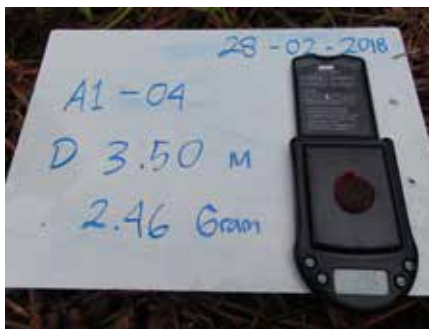 28-02-2018
A1-04
D 3.50 M
2.46 Gram